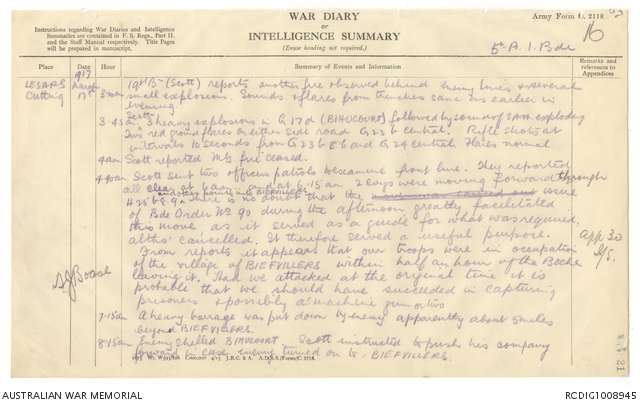 WAR DIARY
OR
INTELLIGENCE SUMMARY
(Erase heading not required.)
Army Form C. 2118.
16
5th A. I. Bde
Instructions regarding War Diaries and Intelligence
Summaries are contained in F. S. Regs., Part II.
and the Staff Manual respectively. Title Pages
will be prepared in manuscript.
Place
Date
Hour
Summary of Events and Information
Remarks and
references to
Appendices
LESARS
Cutting
1917
March
17th
3am
19th Bn (Scott) reports another fire observed behind enemy lines & several
small explosions. Sounds & flares from trenches same as earlier in
evening.
3-45am
3 heavy explosions in G17d (BIHUCOURT) followed by sound of SAA exploding
Two red ground flares on either side road G23b central. Rifle shots at
intervals 10 seconds from G23b 8'6 and G24 central flares normal
4am
Scott reported MG fire ceased.
4-40am
Scott sent two officers patrols to examine front line. They reported
all clear at 6am and at 6-15am 2 Coys were moving forward through
H25 b & 9a
There is no doubt that the
issue
of Bde Order No 90 during the afternoon greatly facilitated
this move as it served as a guide for what was required,
altho' cancelled. It therefore served a useful purpose.
App. 30
From reports it appears that our troops were in occupation
of the village of BIEFVILLERS within half an hour of the Boche
leaving it. Had we attacked at the original time it is
probable that we should have succeeded in capturing
prisoners & possibly a machine gun or two
7-15am
A heavy barrage was put down by enemy apparently about 5 miles
beyond BIEFVILLERS.
8-15am
Enemy shelled BIHUCOURT. Scott instructed to push his company
forward in case enemy turned on to BIEFVILLERS.
AUSTRALIAN WAR MEMORIAL
RCDIG1008945